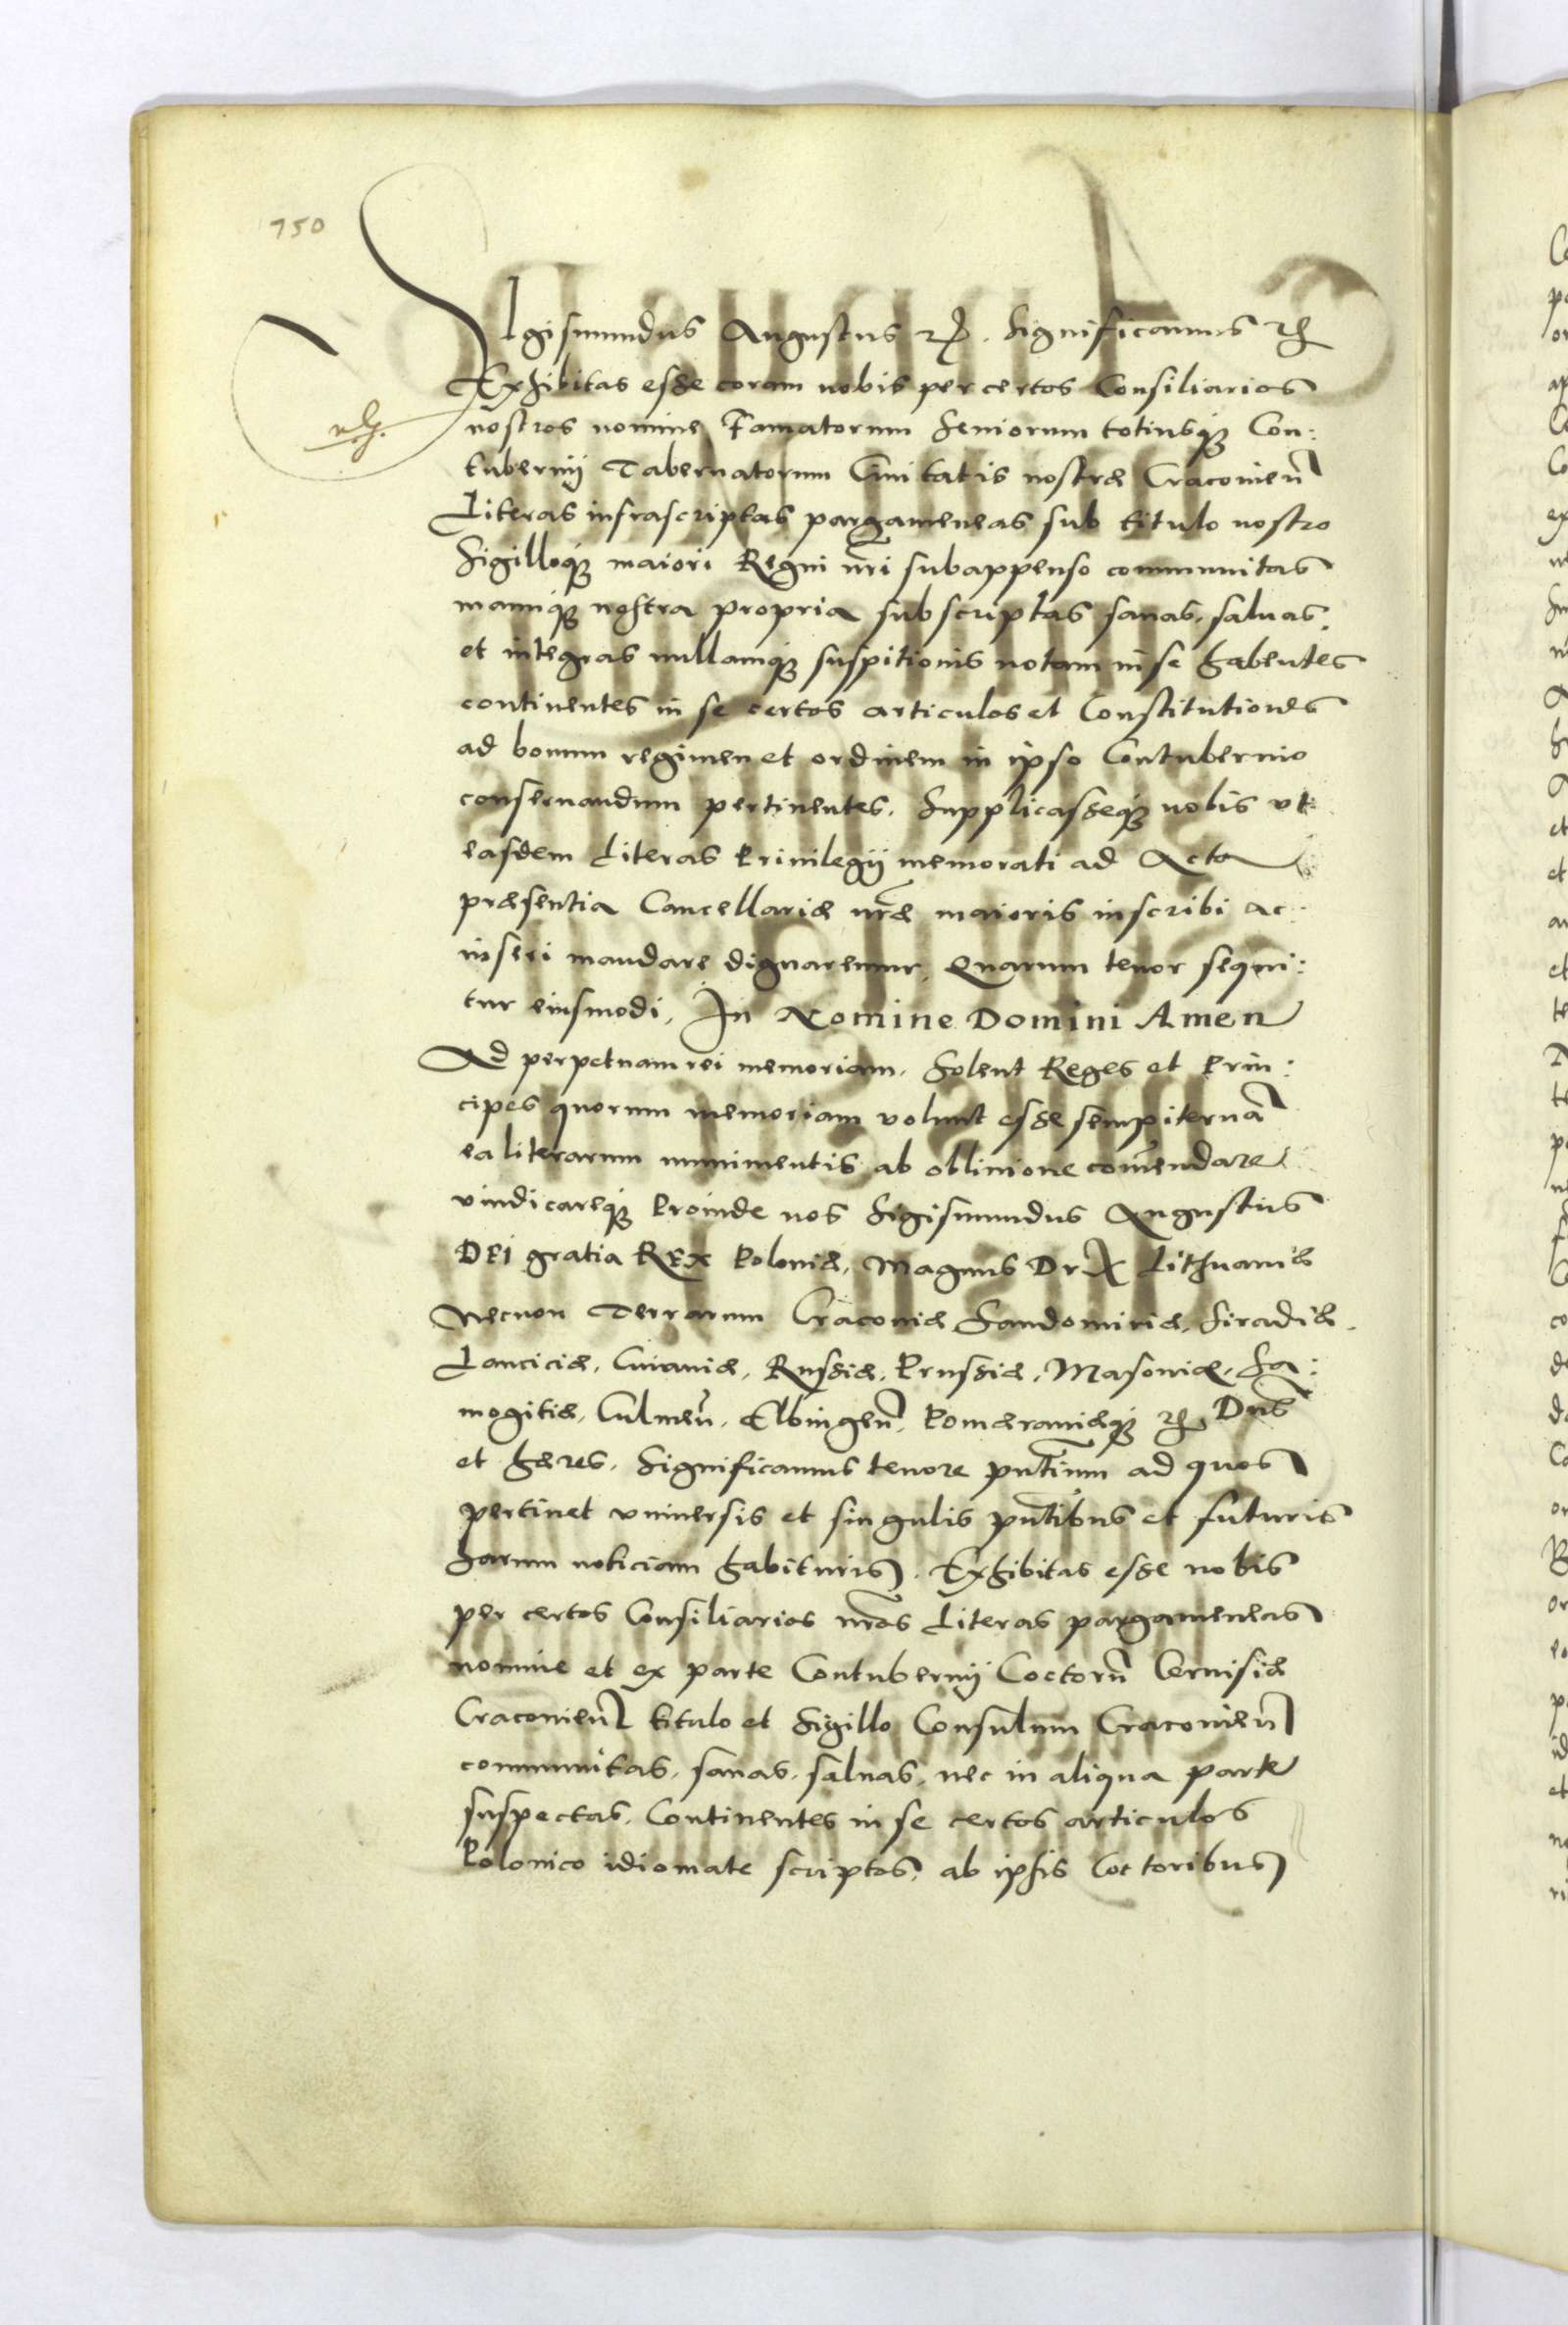 750
Sigismundus Augustus etc. Significamus etc
Exhibitas esse coram nobis per certos Consiliarios
nostros nomine Famatorum Seniorum totiusq3 Con:
tubernij Tabernatorum Civitatis nostræ Cracovieñ
Literas infrascriptas pargameneas sub titulo nostro
Sigilloq3 maiori Regni nr̃i subappenso communitas
manuq3 nostra propria subscriptas sanas, salvas,
et integras nullamq3 suspitionis notam in se habentes
continentes in se certos articulos et Constitutiones
ad bonum regimen et ordinem in ipso Contubernio
conservandum pertinentes. Supplicasseq3 nobis vt
easdem Literas Privilegij memorati ad Acta
præsentia Cancellariæ nr̃æ maioris inscribi ac
inseri mandare dignaremur, Quarum tenor sequi:
tur eiusmodi, In Nomine Domini Amen
Ad perpetuam rei memoriam. Solent Reges et Prin:
cipes quorum memoriam volunt esse sempiternã
ea literarum munimentis ab oblivione com̃endare
vindicareq3 Proinde nos Sigismundus Augustus
DEI gratia REX Poloniæ, Magnus Dux Lithuaniæ
Necnon Terrarum Cracoviæ Sandomiriæ, Siradiæ,
Lanciciæ, Cuiaviæ, Russiæ, Prussiæ, Masoviæ, Sa:
mogitiæ, Culmeñ, Elbingeñ, Pomæraniæq3 etc Dñs
et hæres. Significamus tenore pñtium ad quos
pertinet vniversis et singulis pñtibus et futuris
harum noticiam habituris. Exhibitas esse nobis
per certos Consiliarios nr̃os Literas pargameneas
nomine et ex parte Contubernij Coctorũ Cervisiæ
Cracovieñ titulo et Sigillo Consulum Cracovieñ
communitas, sanas, salvas, nec in aliqua parte
suspectas, Continentes in se certos articulos
Polonico idiomate scriptos, ab ipsis Coctoribus